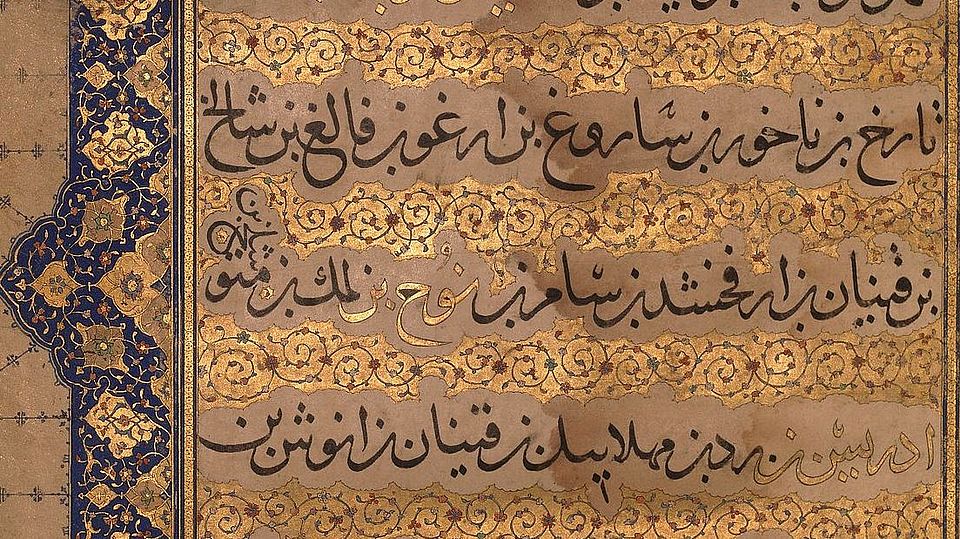 تارخ بن ناحور بن ساروغ بن ارغو بن فالغ بن شالخ
بن قينان بن ارفخشد بن سام بن نوح بن لمك بن متوشلخ بن
ادريس بن يرد بن مهلاييل بن قينان بن انوش بن